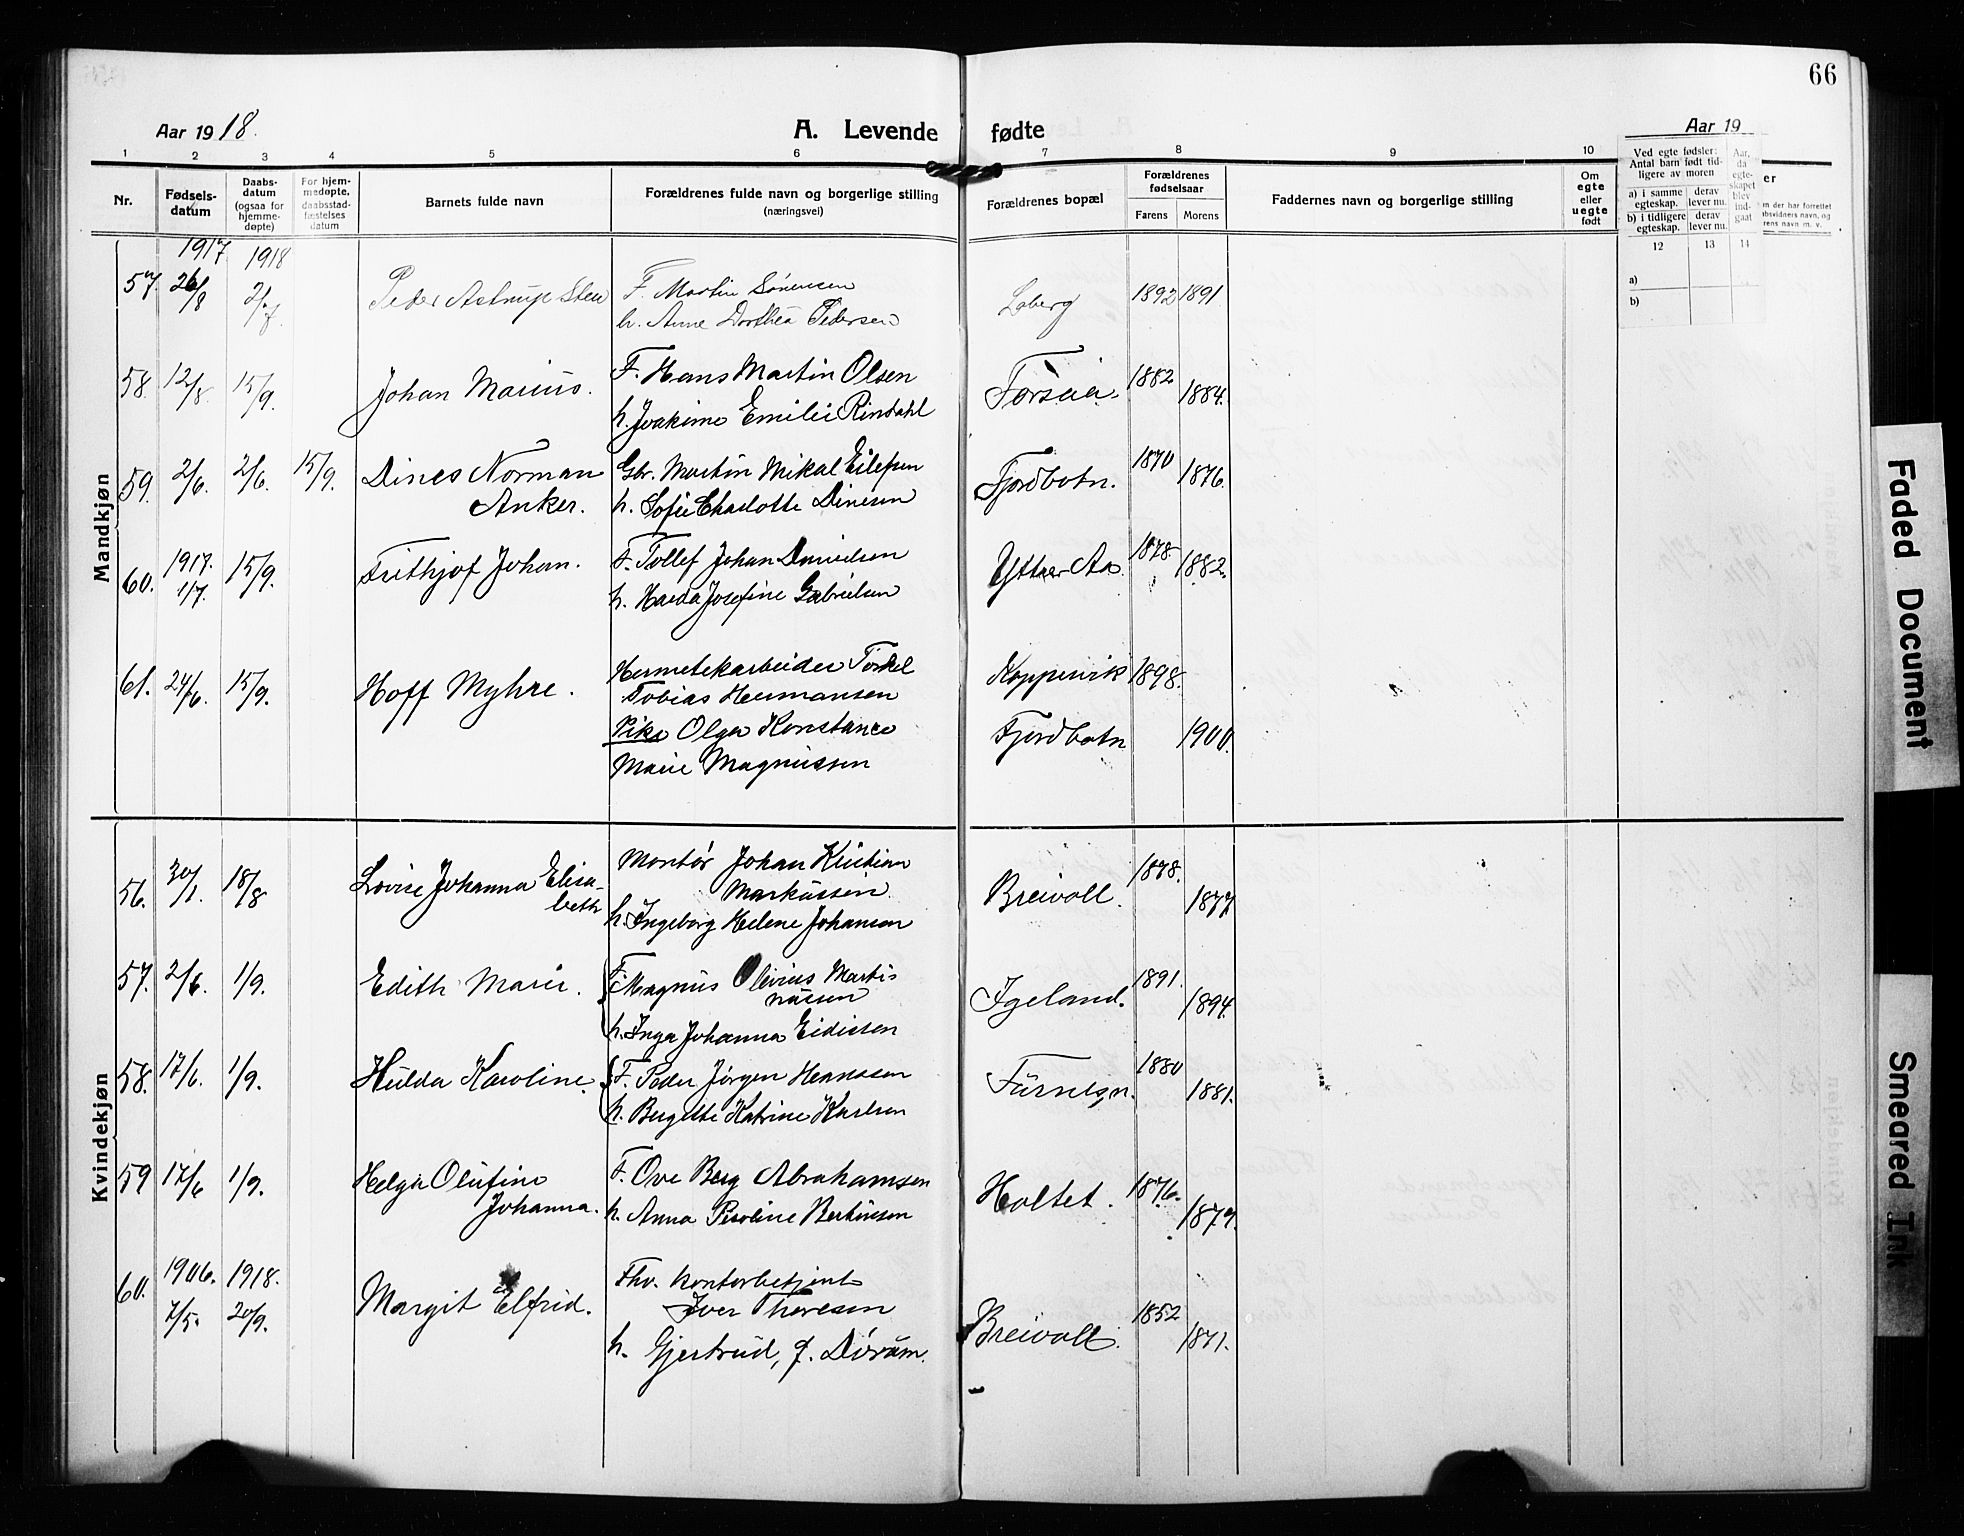 66
Aar 1918.
A. Levende fødte
Aar 19
1 2 3 4 5 6 7 8 9 10
Nr.
Fødsels-
datum
Daabs-
datum
(ogsaa for
hjemme-
døpte)
For hjem-
medøpte,
daabsstad-
fæstelses
datum
Barnets fulde navn
Forældrenes fulde navn og borgerlige stilling
(næringsvei)
Forældrenes bopæl
Forældrenes
fødselsaar
Farens Morens
Faddernes navn og borgerlige stilling
Om
egte
eller
uegte
født
Ved egte fødsler:
Antal barn født tid-
ligere av moren
a) i samme
egteskap.
derav
lever nu.
b) i tidligere
egteskap.
derav
lever nu.
Aar,
da
egte-
skapet
blev
ind-
gaat
12 13 14
a)
b)
er
n der har forrettet
absvidners navn, og
rens navn m. v.
Mandkjøn
1917 1918
57. 26/8 2/7. Peder Astrup Sten F. Martin Sørensen Loberg 1892 1891
h. Anne Dorthea Pedersen
58. 12/8. 15/9. Johan Marius. F. Hans Martin Olsen Forsaa. 1882 1884.
h. Joakime Emilie Rindahl
59. 2/6. 2/6. 15/9. Dines Norman Gbr. Martin Mikal Eilefsen Fjordbotn. 1870 1876.
Anker. h. Sofie Charlotte Dinesen
60. 1917. 1/7. 15/9. Frithjof Johan. F. Tollef Johan Danielsen Ytter Aa. 1878. 1882.
h. Harda Josefine Gabrielsen
61. 24/6. 15/9. Hoff Myhre. Hermetekarbeider Torkel Koppervik 1898.
Tobias Hermansen
Pike Olga Konstance Fjordbotn 1900.
Marie Magnussen
Kvindekjøn
56. 30/1. 18/8 Lovise Johanna Elisa- Montør Johan Kristian Breivoll. 1878. 1877
beth Markussen.
h. Ingeborg Helene Johansen
57. 2/6. 1/9. Edith Marie. F. Magnus Olivius Marti- Igeland. 1891. 1894.
nussen
h. Inga Johanna Eidissen
58. 17/6. 1/9. Hulda Karoline. F. Peder Jørgen Hanssen 1880 1881.
h. Bergitte Katrine Karlsen
59 17/6 1/9. Helga Olufine F. Ove Berg Abrahamsen Holtet. 1876. 1879.
Johanna. h. Anna Peroline Bertinsen
60. 1906. 7/5. 1918. 20/9. Margit Elfrid. Fhv. kontorbetjent Breivoll. 1852 1871.
Iver Thoresen
h. Gjertrud, f. Dørum.
Faded Document
Smeared Ink